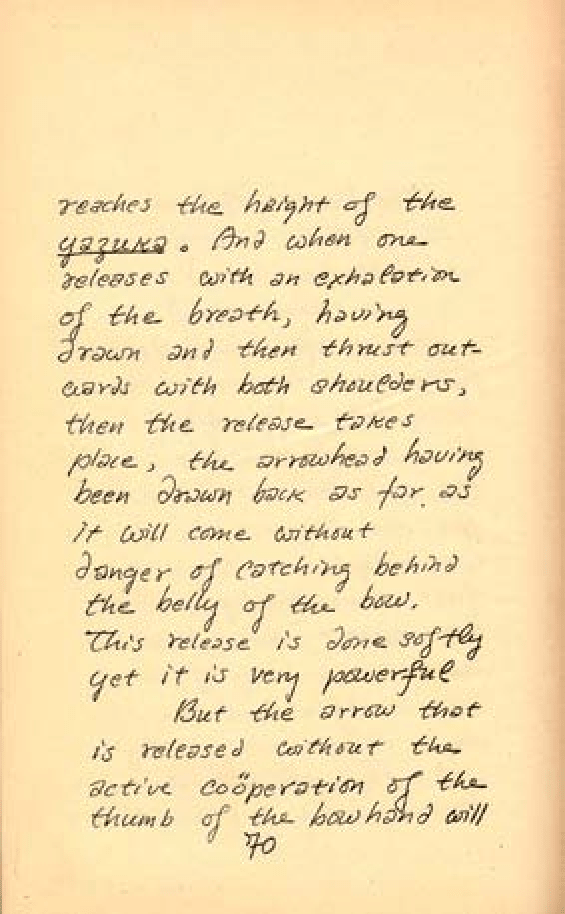 reaches the height of the
yazuka. And when one
releases with an exhalation
of the breath, having
drawn and then thrust out-
wards with both shoulders,
then the release takes
place, the arrowhead having
been drawn back as far as
it will come without
danger of catching behind
the belly of the bow.
This release is done softly
yet it is very powerful
But the arrow that
is released without the
active coöperation of the
thumb of the bowhand will
70